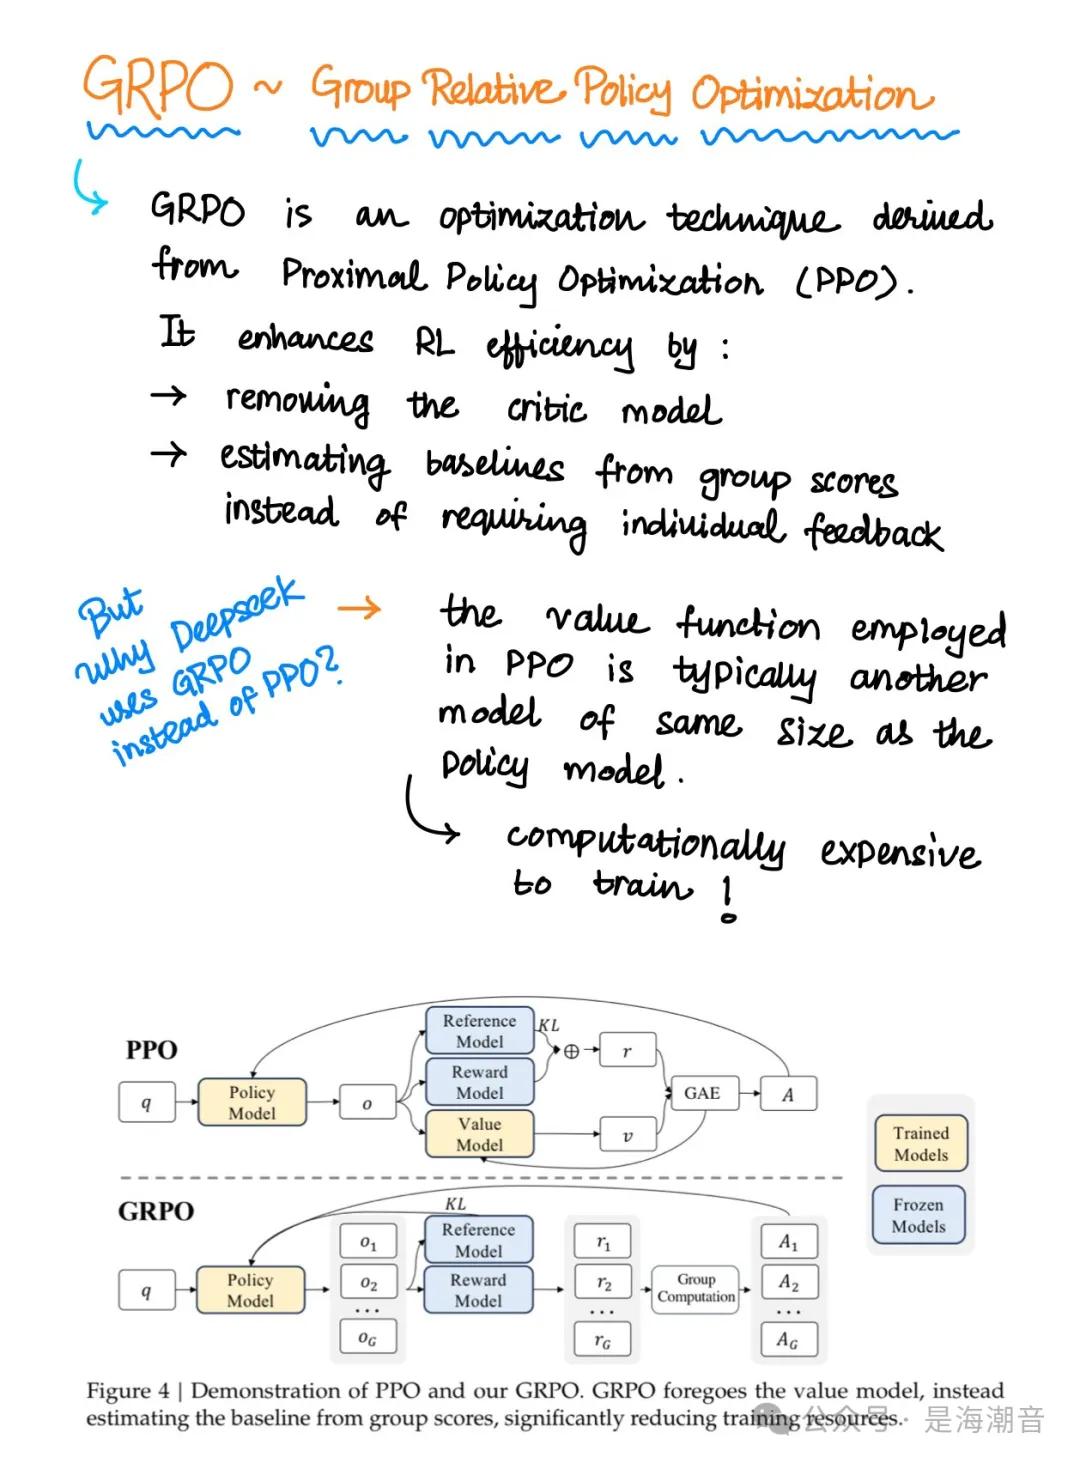 GRPO ~ Group Relative Policy Optimization
GRPO is an optimization technique derived
from Proximal Policy Optimization (PPO).
It enhances RL efficiency by :
→ removing the critic model
→ estimating baselines from group scores
instead of requiring individual feedback
But
why Deepseek
uses GRPO
instead of PPO?
→ the value function employed
in PPO is typically another
model of same size as the
policy model.
computationally expensive
to train !
PPO
q
Policy
Model
o
Reference
Model
KL
Reward
Model
Value
Model
⊕
r
v
GAE
A
Trained
Models
Frozen
Models
GRPO
q
Policy
Model
o₁
o₂
...
o_G
KL
Reference
Model
Reward
Model
r₁
r₂
...
r_G
Group
Computation
A₁
A₂
...
A_G
Figure 4 | Demonstration of PPO and our GRPO. GRPO foregoes the value model, instead
estimating the baseline from group scores, significantly reducing training resources.
公众号 · 是海潮音